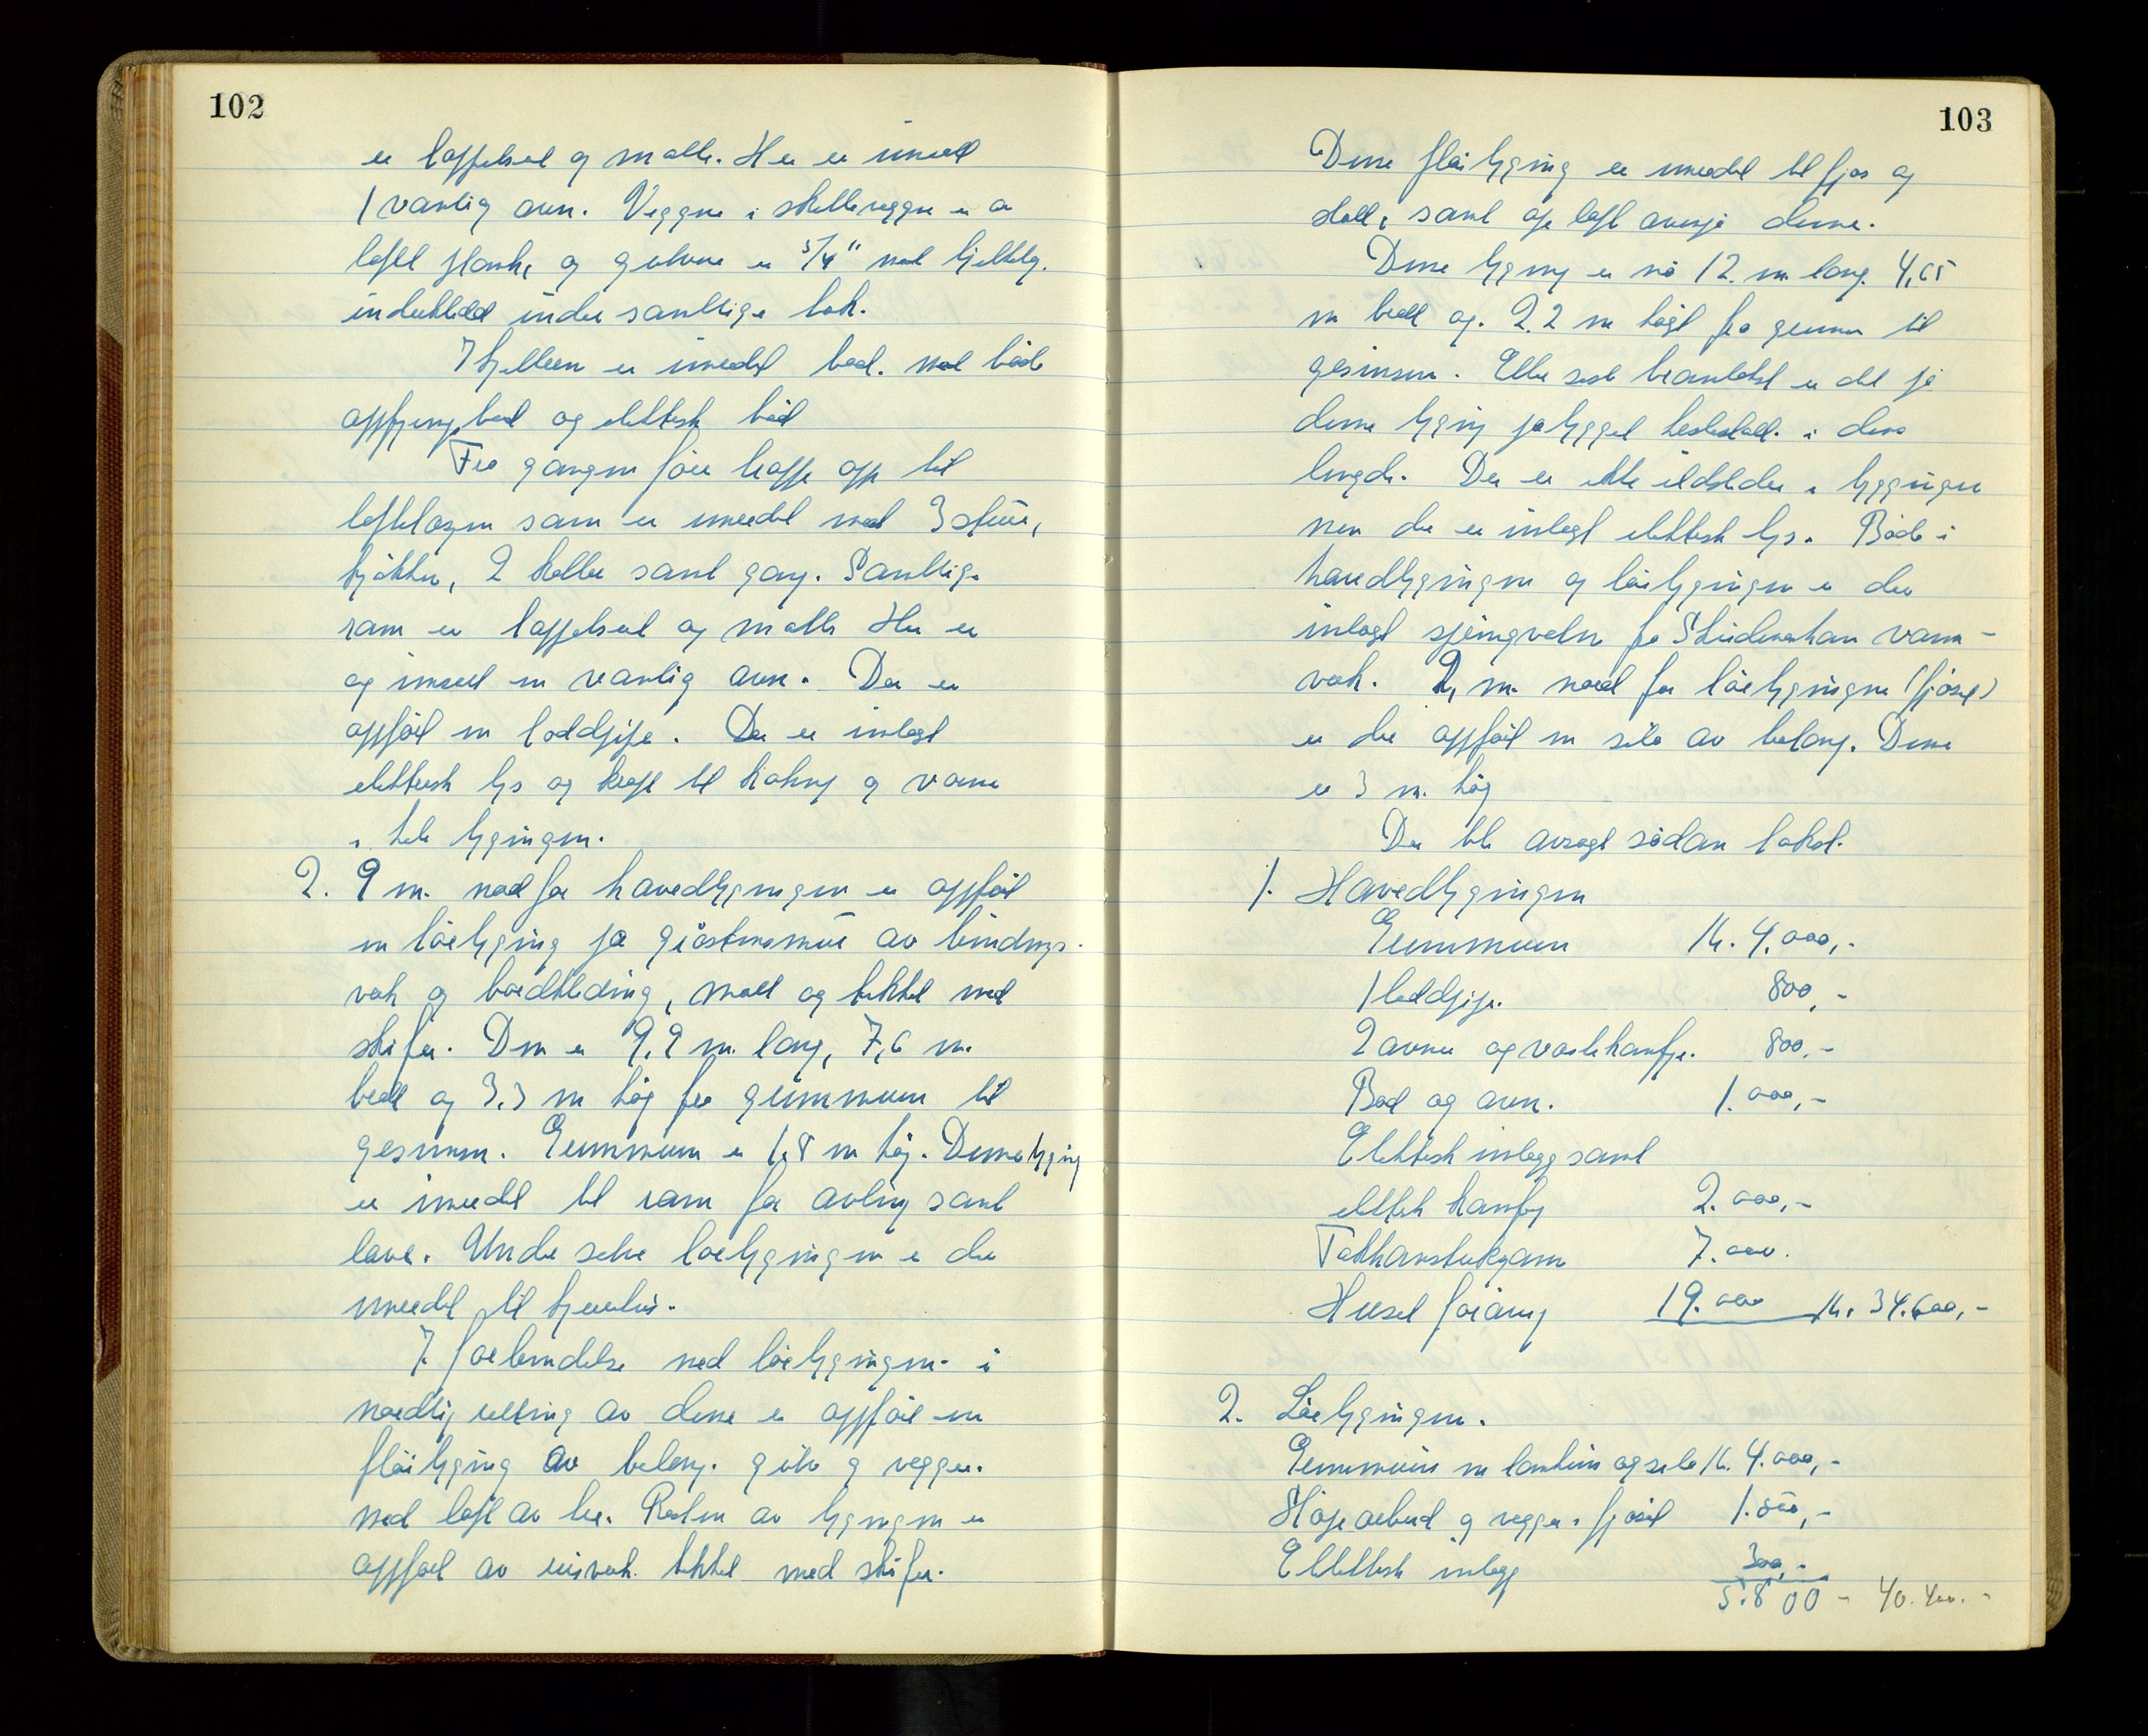 102
er tappetsert og malt. Her er innsett
1 vanlig ovn. Veggene i skilleveggene er av
loftet plank, og golvene er 5/4" med
underkledd under samtlige tak.
I kjelleren er innredet bad. med både
oppfyringsbad og elektrisk bad
Fra gangen fører trapp opp til
loftetasjen som er innredet med 3 stuer,
kjøkken, 2 kott samt gang. Samtlige
rom er tappetsert og malt Her er
og innsett en vanlig ovn. Der er
oppført en loddpipe. Der er innlagt
elektrisk lys og kraft til koking og varme
i hele bygningen.
2. 9 m. nord for hovedbygningen er oppført
en løebygning på gråsteinsmur av bindings-
verk og bordkledning, malt og tekket med
skifer. Den er 9,9 m. lang, 7,6 m.
bredt og 3,3 m høg fra grunnmuren til
gesimsen. Grunnmuren er 1,8 m høg. Denne bygning
er innredet til rom for avling samt
løve. Under selve løebygningen er der
innredet til kjerrehus.
I forbindelse med løebygningen i
nordlig retning av denne er oppført en
fløibygning av betong. golv og vegger.
med loft av tre. Resten av bygningen er
oppført av reisverk tekket med skifer.
103
Denne fløibygning er innredet til fjøs og
stall, samt opp loft over på denne.
Denne bygning er nå 12. m lang. 4,65
m bredt og. 2.2 m høgt fra grunnen til
gesimsen. Etter siste branntakst er det på
denne bygning påbygget hestestall i dens
lengde. Der er ikke ildsteder i bygningen
men der er innlagt elektrisk lys. Både i
hovedbygningen og løebygningen er der
innlagt springvatn fra vann-
verk. 2, m. nord for løebygningen (fjøset)
er der oppført en silo av betong. Denne
er 3 m. høg
Der ble avsagt sådan takst.
1. Hovedbygningen
Grunnmuren Kr. 4.000,-
1 loddpipe. 800,-
2 ovner og vaskekomfyr. 800,-
Bad og ovn. 1.000,-
Elektrisk innlegg samt
elektrisk komfyr 2.000,-
Takkonstruksjonen 7.000.
Huset forøvrig 19.000 Kr. 34.600,-
2. Løebygningen.
Grunnmuren m og silo Kr. 4.000,-
Støpearbeid og vegger i fjøset 1.500,-
Elektrisk innlegg 300,-
5.800 - 40.400.-